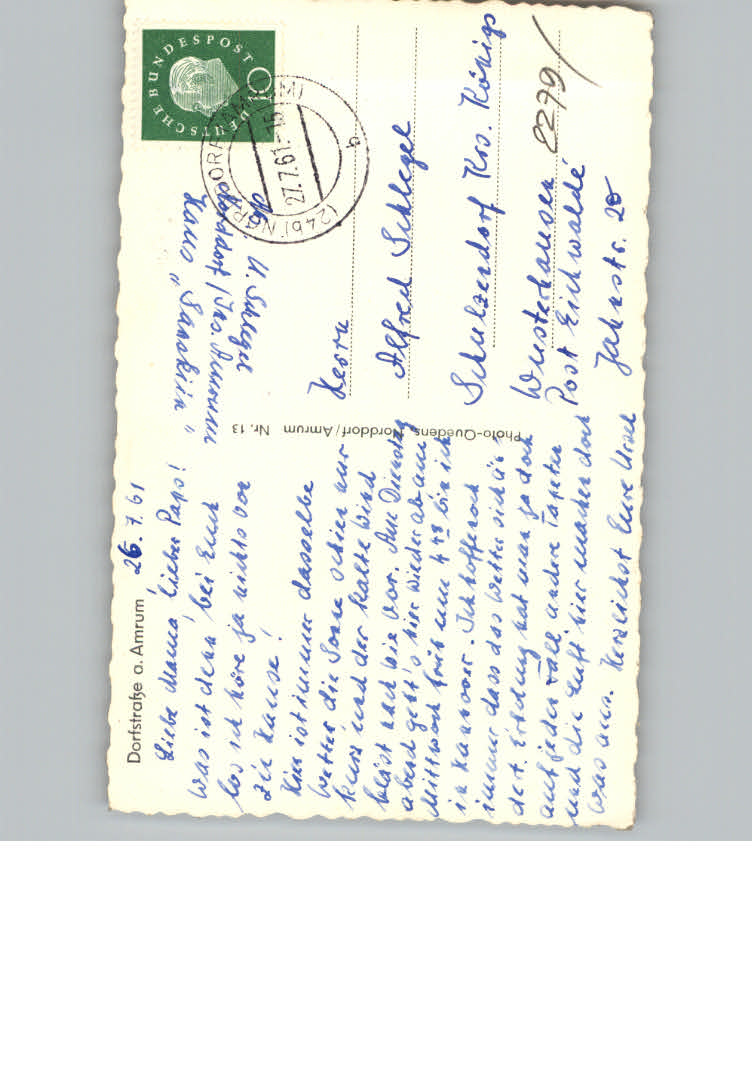 Dorfstraße a. Amrum
26.7.61
Liebe Mama, lieber Paps!
Was ist denn bei Euch
los ich höre ja nichts von
zu Hause!
Hier ist immer dasselbe
Wetter die Sonne schien nur
kurz und der kalte Wind
bläst nach wie vor. Am Dienstag
abend geht's hier wieder ab am
Mittwoch früh um 4 48 bin ich
in Hannover. Ich hoffe noch
immer dass das Wetter sich än-
dert. Erholung hat man ja doch
auf jeden Fall andere Tapeten
und die Luft hier machen doch
was aus. Herzlichst Eure Ursel
Photo-Quedens, Norddorf/Amrum Nr. 13
U. Schlegel
Norddorf / Ins. Amrum
Haus "
"
DEUTSCHE BUNDESPOST
(24b) NORDDORF
27.7.61-15
b
Herrn
Alfred Schlegel
Schulzendorf Krs. Königs
Wusterhausen
Post Eichwalde
Jahnstr. 20
2279/